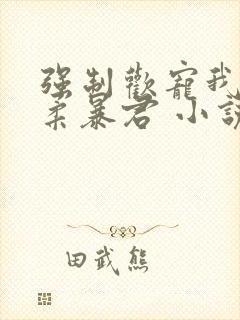 强制歡寵我
柔暴君 小說
田武熊